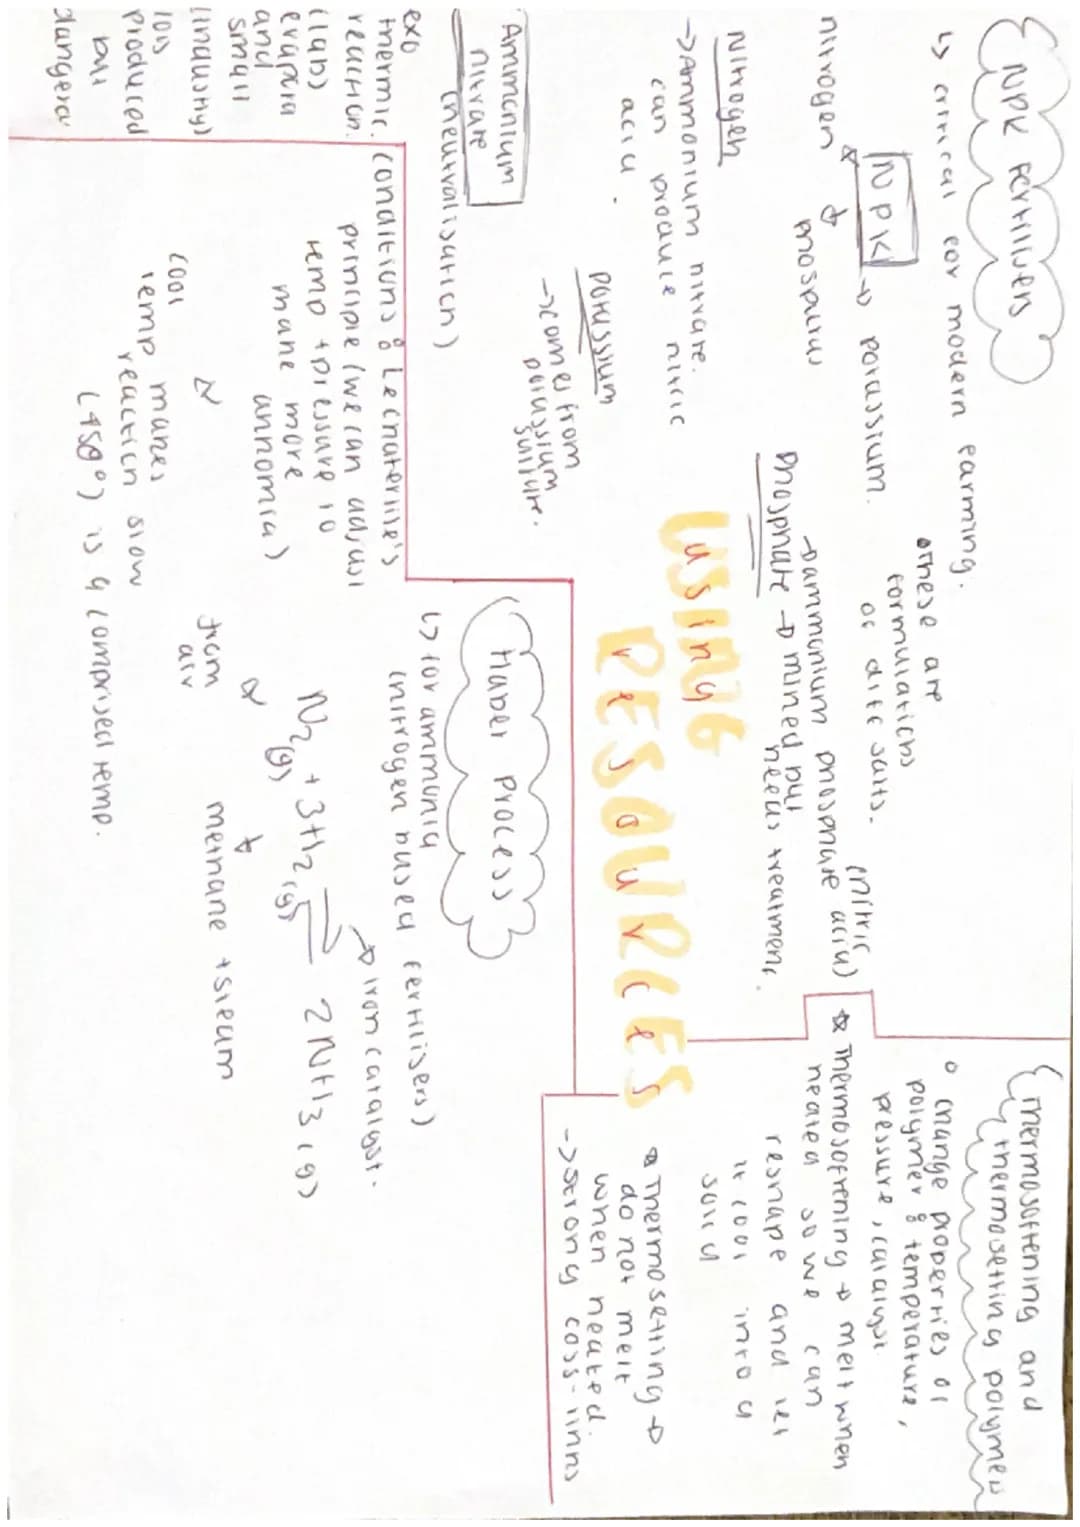 NPK Fertilivers
↳ critical for modern farming.
NPK
nitrogen
phospurus
→ potassium.
•These are
formulations
of dift salts.
Nitrogen
->Ammonium nitrate.
can produce nitric
acid.
Potassium
->comes from
potassium
sulfure.
(nitric
→ammonium phosphate acid)
phosphate → mined but
needs treatment.
USING
RESOURCES
Ammonium
nitrate
(neutralisation)
exo
thermic.
reaction.
(lab)
evapora
and
small
(industry)
lots
produced
but
dangerou
Conditions: Le chaterlile's
principle (we can adjust
temp + pressure to
make more
annomia)
cool
temp makes
reaction slow
(450°) is a comprised temp.
Haber Process
↳ for ammonia
(nitrogen based fertilisers)
→ iron catalyst.
N2(g) + 3H2(g) ⇌ 2NH3(g)
from
air
methane + steam
Thermosoftening and
thermosetting polymers
o change properties of
polymer: temperature,
pressure, catalyst.
Thermosoftening → melt when
heated so we can
reshape and let
it cool into a
solid
Thermosetting →
do not melt
when heated.
->strong coss-links